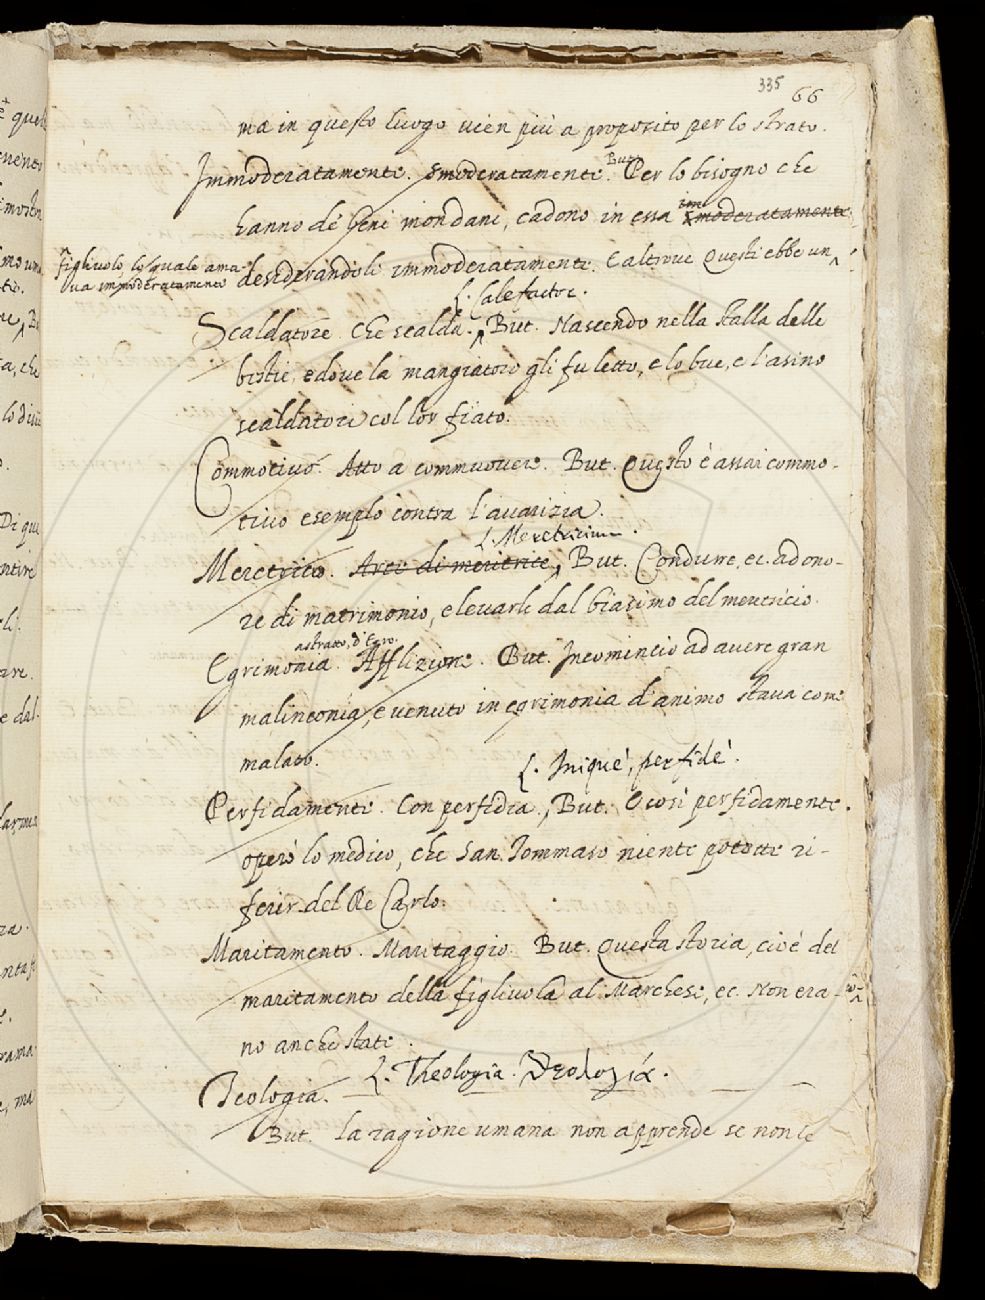 335 66
ma in questo luogo vien più a proposito per lo strato.
Immoderatamente. Smoderatamente. But. Per lo bisogno che
hanno de' beni mondani, cadono in essa im smoderatamente
desiderandoli immoderatamente. E altrove Questi ebbe un
figlivolo, lo quale ama
va immoderatamente
L. Calefactor.
Scaldatore. Che scalda. But. Nascendo nella stalla delle
bestie, e dove la mangiatoio gli fu letto, e lo bue, e l'asino
scaldatori col lor fiato.
Commotivo. Atto a commuovere. But. Questo è assai commo-
tivo esemplo contra l'avarizia.
L. Meretricium.
Meretricio. Arte di meretrice, But. Condure, ec. ad ono-
re di matrimonio, e levarle dal biasimo del meretricio.
astratto d'Egro.
Egrimonia. Afflizione. But. Incominciò ad avere gran
malinconia, e venuto in egrimonia d'animo stava come
malato.
L. Iniquè, perfidè.
Perfidamente. Con perfidia. But. E così perfidamente
operò lo medico, che San Tommaso niente potette ri-
ferir del Re Carlo.
Maritamento. Maritaggio. But. Questa storia, cioè del
maritamento della figlivola al Marchese, ec. Non era-
no anche state.
L. Theologia. Θεολογία.
Teologia.
But. La ragione umana non apprende se non le